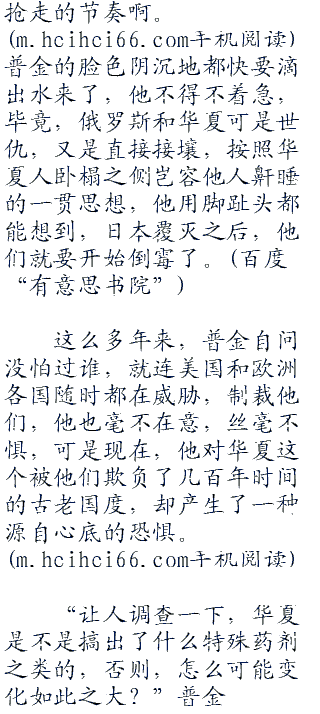 抢走的节奏啊。
(m.hcihci66.com手机阅读)
普金的脸色阴沉地都快要滴
出水来了，他不得不着急，
毕竟，俄罗斯和华夏可是世
仇，又是直接接壤，按照华
夏人卧榻之侧岂容他人鼾睡
的一贯思想，他用脚趾头都
能想到，日本覆灭之后，他
们就要开始倒霉了。(百度
“有意思书院”)
这么多年来，普金自问
没怕过谁，就连美国和欧洲
各国随时都在威胁，制裁他
们，他也毫不在意，丝毫不
惧，可是现在，他对华夏这
个被他们欺负了几百年时间
的古老国度，却产生了一种
源自心底的恐惧。
(m.hcihci66.com手机阅读)
“让人调查一下，华夏
是不是搞出了什么特殊药剂
之类的，否则，怎么可能变
化如此之大？”普金